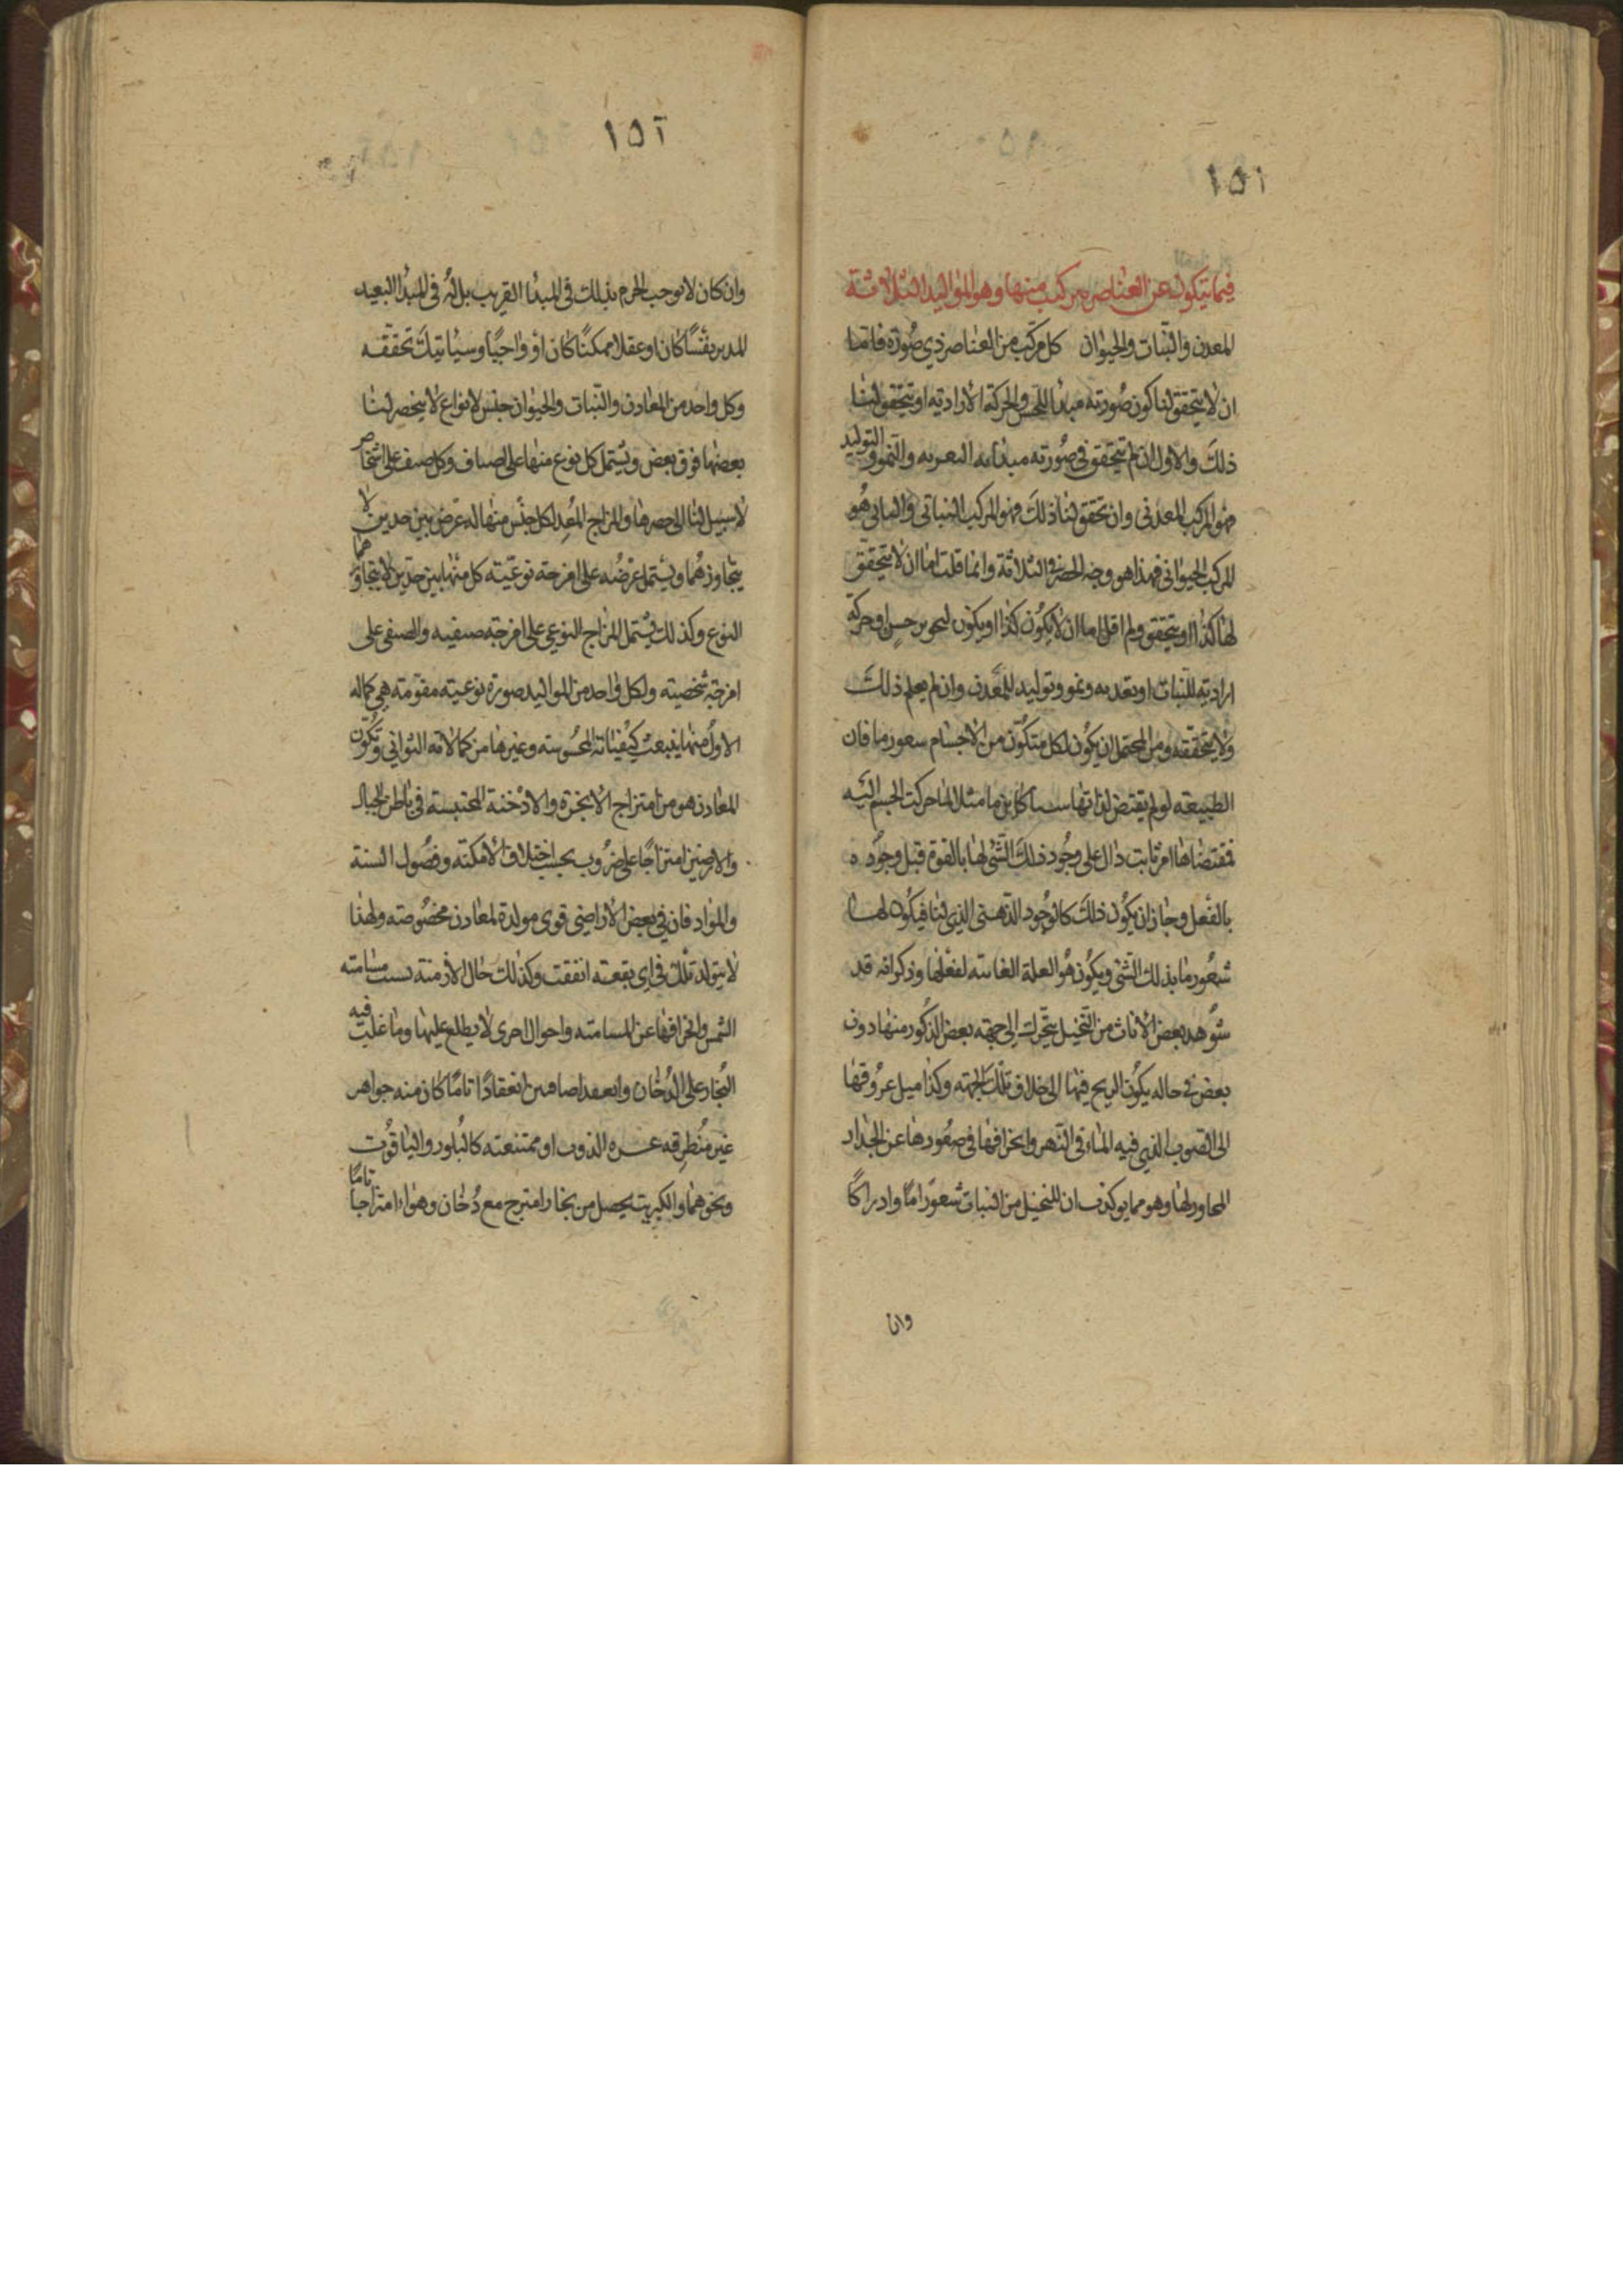 ١٥١
فيما يتكون عن العناصر بتركيب منها وهو المواليد الثلاثة
المعدن والنبات والحيوان كل مركب من العناصر ذي صورة فاما
ان لا يتحقق لنا كون صورته مبدأ للحس والحركة الارادية او يتحقق لنا
ذلك والاول ان لم يتحقق في صورته مبدأية التغذية والنمو والتوليد
فهو المركب المعدني وان تحقق لنا ذلك فهو المركب النباتي والثاني هو
المركب الحيواني فهذا هو وجه الحصر في الثلاثة وانما قلت اما ان لا يتحقق
لها كذا او يتحقق ولم اقل اما ان لا يكون كذا او يكون لتجويز حس او حركة
ارادية للنبات او تغذيه ونمو وتوليد للمعدن وان لم يعلم ذلك
ولا يتحققه ومن المحتمل ان يكون لكل متكون من الاجسام شعور ما فان
الطبيعه لو لم يقتض لذاتها شيأ كاين ما مثلا لما حركت الجسم اليه
فمقتضاها امر ثابت دال على وجود ذلك الشئ لها بالقوة قبل وجوده
بالفعل وجاز ان يكون ذلك كالوجود الذهني الذي لنا فيكون لها
شعور ما بذلك الشئ ويكون هو العلة الغائيه لفعلها وذكر انه قد
شوهد بعض الاناث من النخيل يتحرك الى جهه بعض الذكور منها دون
بعض في حاله يكون الريح فيها الى خلاف تلك الجهه وكذا ميل عروقها
الى الصوب الذي فيه الماء في النهر وانحرافها في صعودها عن الجدار
المجاور لها وهو مما يوكد ان للنخيل من النبات شعورا ما وادراكا
وان
١٥٢
وان كان لا يوجب الجزم بذلك في المبدأ القريب بل انه في المبدأ البعيد
المدبر نفسا كان او عقلا ممكنا كان او واجبا وسيأتيك تحققه
وكل واحد من المعادن والنبات والحيوان جنس لانواع لا ينحصر لنا
بعضها فوق بعض ويشتمل كل نوع منها على اصناف وكل صنف على اشخاص
لا سبيل لنا الى حصرها والمزاج المعد لكل جنس منها له عرض بين حدين لا
يتجاوزهما ويشتمل عرضه على امزجه نوعيته كل منها بين حدين لا يتجاوزهما
النوع وكذلك يشتمل المزاج النوعي على امزجه صنفيه والصنفي على
امزجة شخصيته ولكل واحد من المواليد صورة نوعيته مقومته هي كماله
الاول منها ينبعث كيفياته المحسوسته وغيرها من كمالاته الثواني وتكون
المعادن هو من امتزاج الابخرة والادخنة المحتبسة في باطن الجبال
والارضين امتزاجا على ضروب بحسب اختلاف الامكنته وفصول السنة
والمواد فان في بعض الاراضي قوى مولدة لمعادن مخصوصته ولهذا
لا يتولد تلك في اي بقعته اتفقت وكذلك حال الازمنة بسبب مسامته
الشمس وانحرافها عن المسامته واحوال اخرى لا يطلع عليها وما غلب فيه
البخار على الدخان وانعقدا صافيين انعقادا تاما كان منه جواهر
غير منطرقه عسره الذوب او ممتنعته كالبلور والياقوت
ونحوهما والكبريته يحصل من بخار امتزج مع دخان وهواء امتزاجا تاما